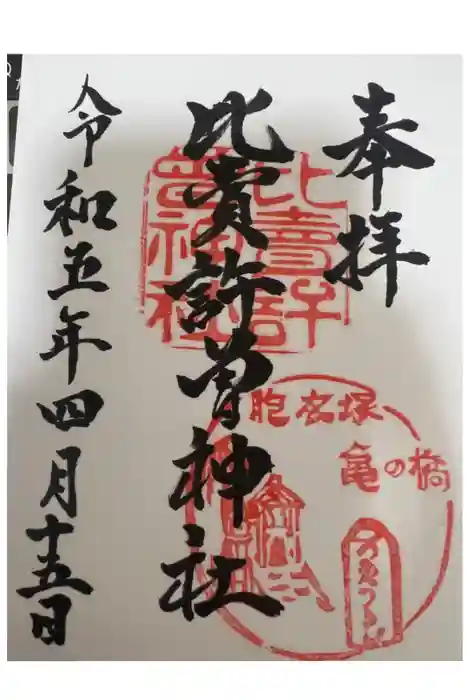 奉拝
比賣許曽神社
比賣許曽神社
胞衣塚
亀の橋
令和五年四月十五日